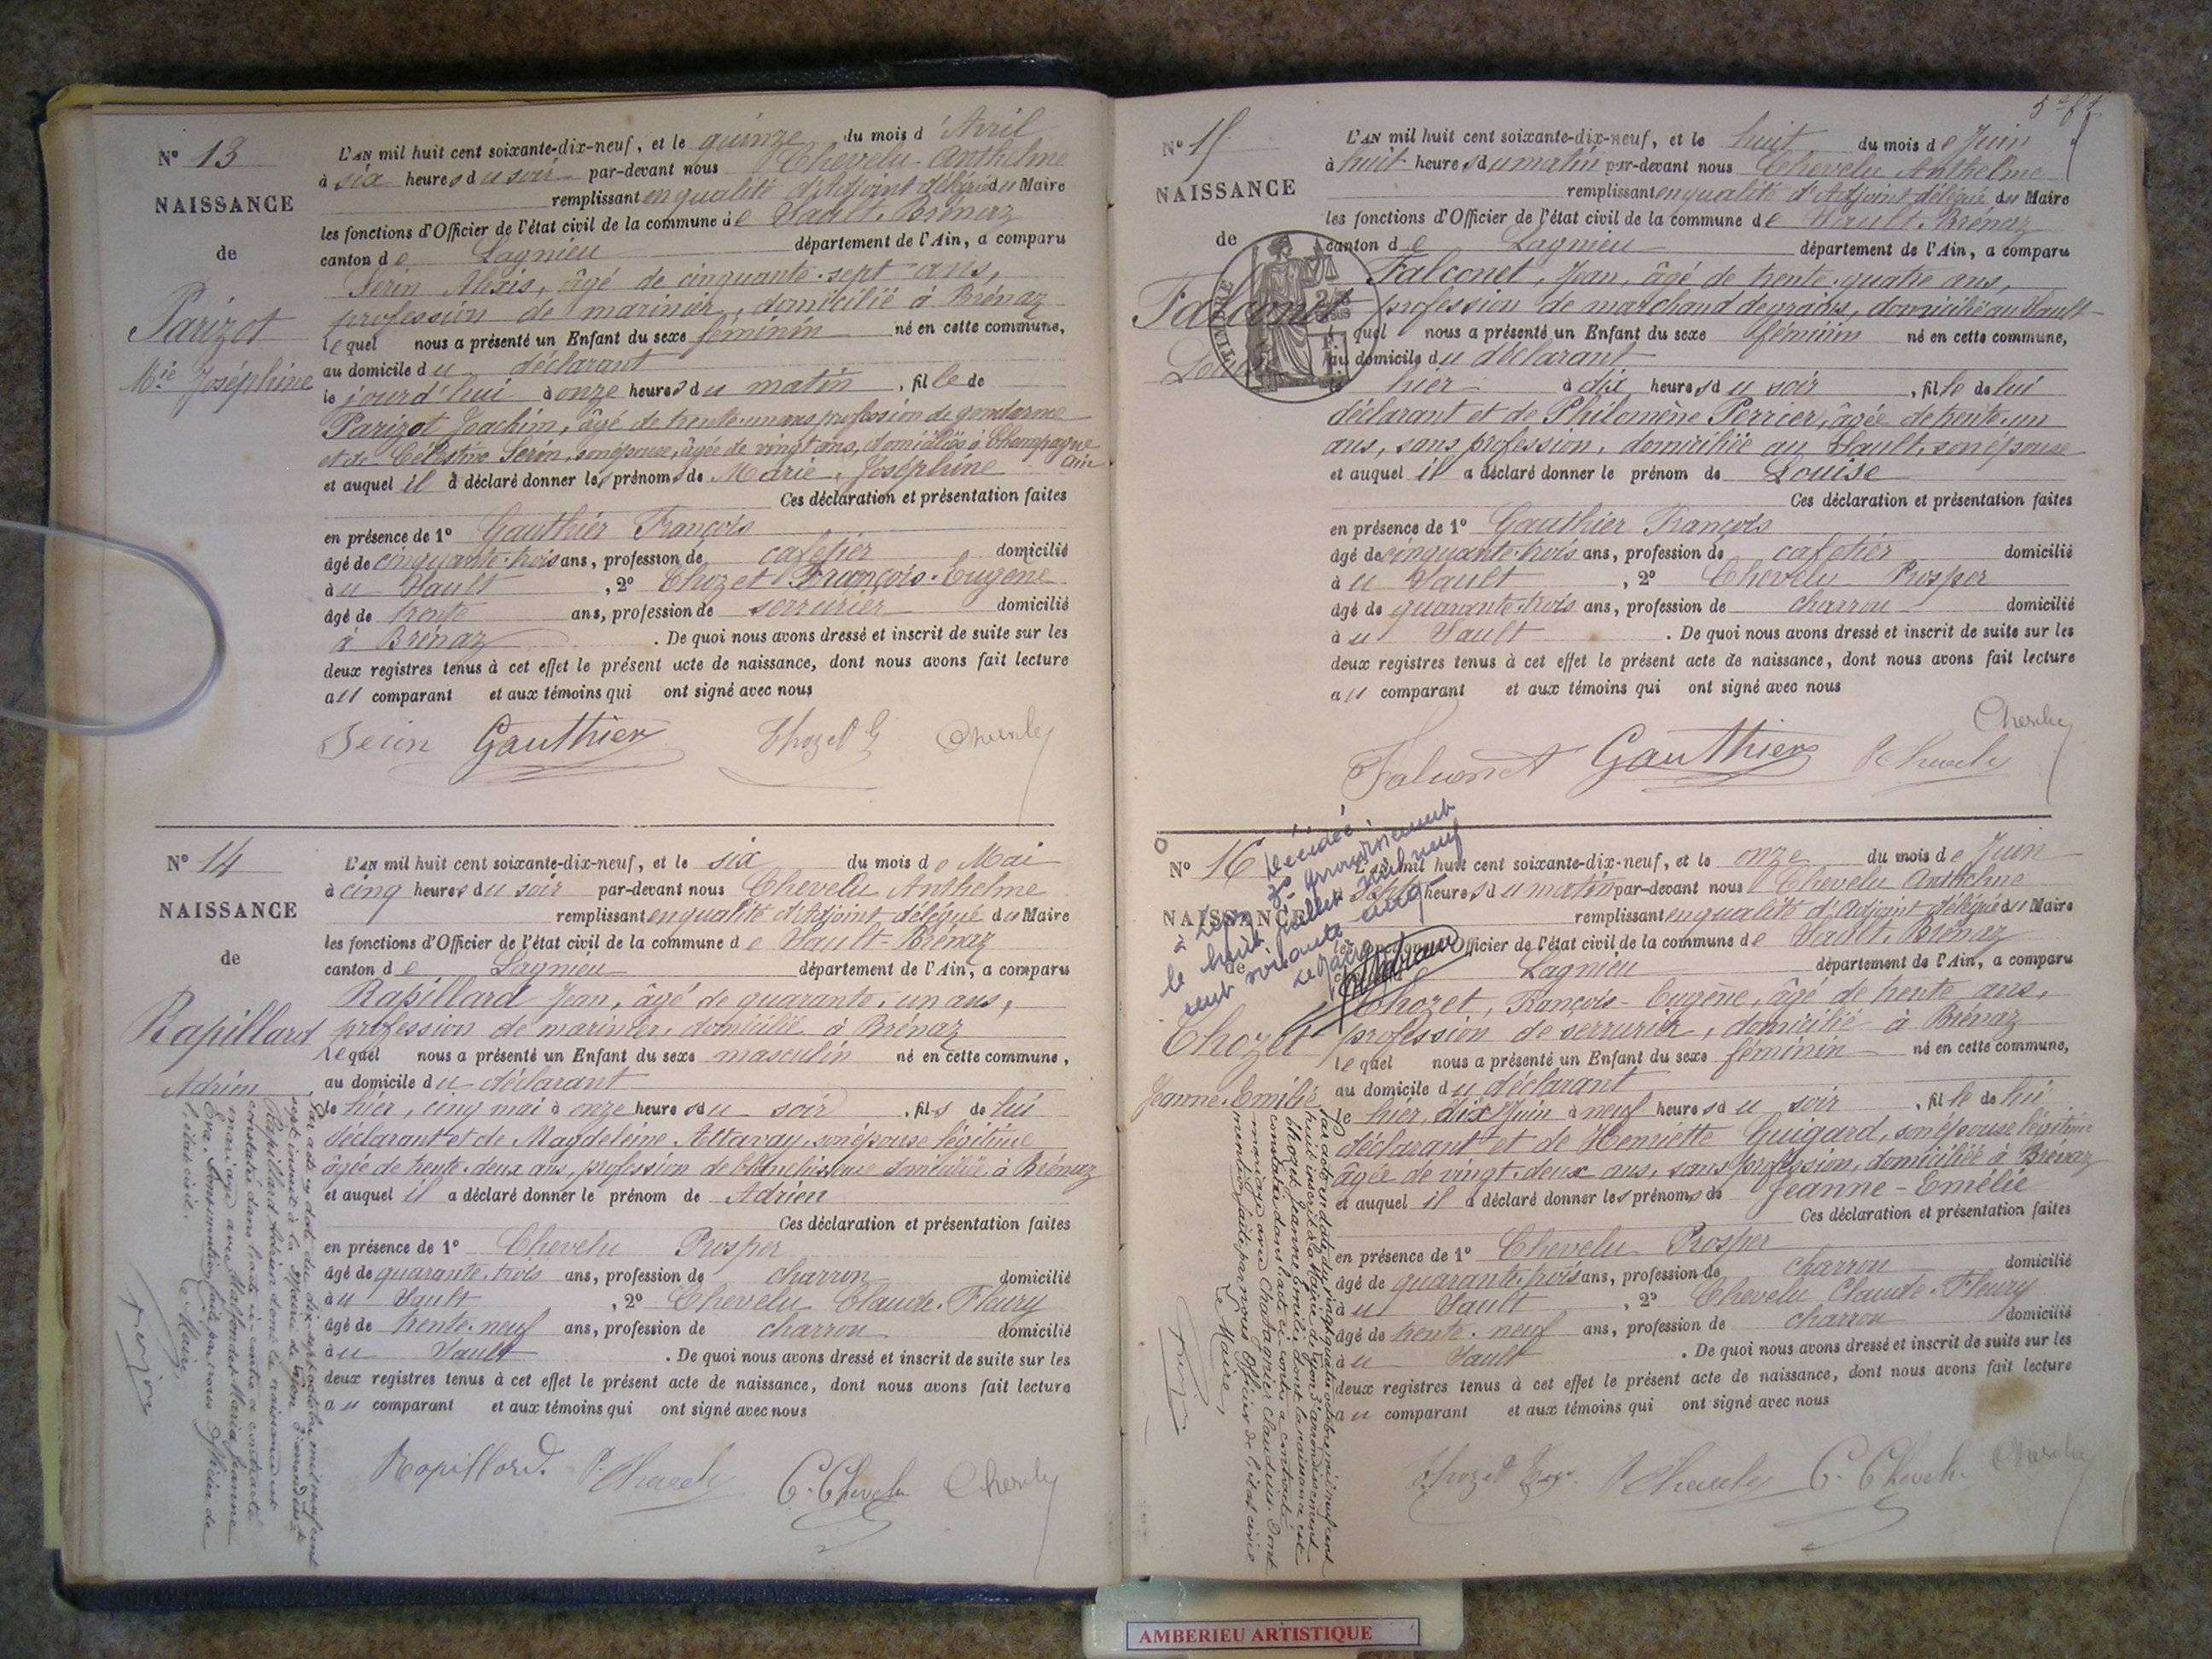 N° 13
NAISSANCE
de
Parizot
Mie Joséphine
L'AN mil huit cent soixante-dix-neuf, et le quinze du mois d'Avril
à six heures du soir par-devant nous Chevelu Anthelme
remplissant en qualité d'Adjoint délégué du Maire
les fonctions d'Officier de l'état civil de la commune de Sault-Brénaz
canton de Lagnieu département de l'Ain, a comparu
Serin Alexis, âgé de cinquante-sept ans,
profession de marinier, domicilié à Brénaz
lequel nous a présenté un Enfant du sexe féminin né en cette commune,
au domicile du déclarant
le jourd'hui à onze heures du matin, fille de
Parizot Joachim, âgé de trente-un ans profession de gendarme
et de Célestine Serin, son épouse, âgée de vingt ans, domiciliés à Champagne
Ain
et auquel il a déclaré donner les prénoms de Marie, Joséphine
Ces déclaration et présentation faites
en présence de 1° Gauthier François
âgé de cinquante-trois ans, profession de cafetier domicilié
au Sault, 2° Chozet François-Eugène
âgé de trente ans, profession de serrurier domicilié
à Brénaz. De quoi nous avons dressé et inscrit de suite sur les
deux registres tenus à cet effet le présent acte de naissance, dont nous avons fait lecture
au comparant et aux témoins qui ont signé avec nous
Serin Gauthier Chozet E Chevelu
N° 14
NAISSANCE
de
Rapillard
Adrien
L'AN mil huit cent soixante-dix-neuf, et le six du mois de Mai
à cinq heures du soir par-devant nous Chevelu Anthelme
remplissant en qualité d'Adjoint délégué du Maire
les fonctions d'Officier de l'état civil de la commune de Sault-Brénaz
canton de Lagnieu département de l'Ain, a comparu
Rapillard Jean, âgé de quarante-un ans,
profession de marinier, domicilié à Brénaz
lequel nous a présenté un Enfant du sexe masculin né en cette commune,
au domicile du déclarant
le hier, cinq mai à onze heures du soir, fils de lui
déclarant et de Magdeleine Attavay, son épouse légitime
âgée de trente-deux ans, profession de blanchisseuse domiciliée à Brénaz
et auquel il a déclaré donner le prénom de Adrien
Ces déclaration et présentation faites
en présence de 1° Chevelu Prosper
âgé de quarante-trois ans, profession de charron domicilié
au Sault, 2° Chevelu Claude-Fleury
âgé de trente-neuf ans, profession de charron domicilié
au Sault. De quoi nous avons dressé et inscrit de suite sur les
deux registres tenus à cet effet le présent acte de naissance, dont nous avons fait lecture
au comparant et aux témoins qui ont signé avec nous
Rapillard. P. Chevelu C. Chevelu Chevelu
Par acte en date du dix-sept octobre mil neuf cent
sept inscrit à la Mairie de Lyon
Rapillard Adrien dont la naissance est
constatée dans l'acte ci-contre a contracté
mariage avec Marie Jeanne
mention faite par nous Officier de
l'état civil.
Le Maire,
5e ft
N° 15
NAISSANCE
de
Falconet
Louise
TIMBRE
L'AN mil huit cent soixante-dix-neuf, et le huit du mois de Juin
à huit heures du matin par-devant nous Chevelu Anthelme
remplissant en qualité d'Adjoint délégué du Maire
les fonctions d'Officier de l'état civil de la commune de Sault-Brénaz
canton de Lagnieu département de l'Ain, a comparu
Falconet, Jean, âgé de trente-quatre ans,
profession de marchand de grains, domicilié au Sault
lequel nous a présenté un Enfant du sexe féminin né en cette commune,
au domicile du déclarant
le hier à dix heures du soir, fille de lui
déclarant et de Philomène Perrier, âgée de trente-un
ans, sans profession, domiciliée au Sault, son épouse
et auquel il a déclaré donner le prénom de Louise
Ces déclaration et présentation faites
en présence de 1° Gauthier François
âgé de cinquante-trois ans, profession de cafetier domicilié
au Sault, 2° Chevelu Prosper
âgé de quarante-trois ans, profession de charron domicilié
au Sault. De quoi nous avons dressé et inscrit de suite sur les
deux registres tenus à cet effet le présent acte de naissance, dont nous avons fait lecture
au comparant et aux témoins qui ont signé avec nous
Chevelu
Falconet Gauthier P Chevelu
N° 16
NAISSANCE
de
Chozet
Jeanne-Emilie
Décédée
à Lyon 3e arrondissement
le huit juillet mil neuf
cent soixante cinq
Le Maire
L'AN mil huit cent soixante-dix-neuf, et le onze du mois de Juin
à sept heures du matin par-devant nous Chevelu Anthelme
remplissant en qualité d'Adjoint délégué du Maire
les fonctions d'Officier de l'état civil de la commune de Sault-Brénaz
canton de Lagnieu département de l'Ain, a comparu
Chozet, François-Eugène, âgé de trente ans,
profession de serrurier, domicilié à Brénaz
lequel nous a présenté un Enfant du sexe féminin né en cette commune,
au domicile du déclarant
le hier, dix Juin à neuf heures du soir, fille de lui
déclarant et de Henriette Guigard, son épouse légitime
âgée de vingt-deux ans, sans profession, domiciliée à Brénaz
et auquel il a déclaré donner les prénoms de Jeanne-Emélie
Ces déclaration et présentation faites
en présence de 1° Chevelu Prosper
âgé de quarante-trois ans, profession de charron domicilié
au Sault, 2° Chevelu Claude-Fleury
âgé de trente-neuf ans, profession de charron domicilié
au Sault. De quoi nous avons dressé et inscrit de suite sur les
deux registres tenus à cet effet le présent acte de naissance, dont nous avons fait lecture
au comparant et aux témoins qui ont signé avec nous
Chozet Eug. P Chevelu C. Chevelu Chevelu
Par acte en date du vingt quatre octobre mil neuf cent
huit inscrit à la Mairie de Lyon 3e arrondissement
Chozet Jeanne Emilie dont la naissance est
constatée dans l'acte ci-contre a contracté
mariage avec Chatagnier Claudius. Dont
mention faite par nous Officier de l'état civil
Le Maire,
AMBERIEU ARTISTIQUE